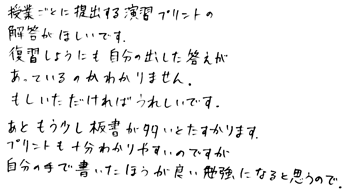 授業ごとに提出する演習プリントの
解答がほしいです。
復習しようにも自分の出した答えが
あっているのかわかりません。
もしいただければうれしいです。
あともう少し板書が多いとたすかります。
プリントも十分わかりやすいのですが
自分の手で書いたほうが良い勉強になると思うので。